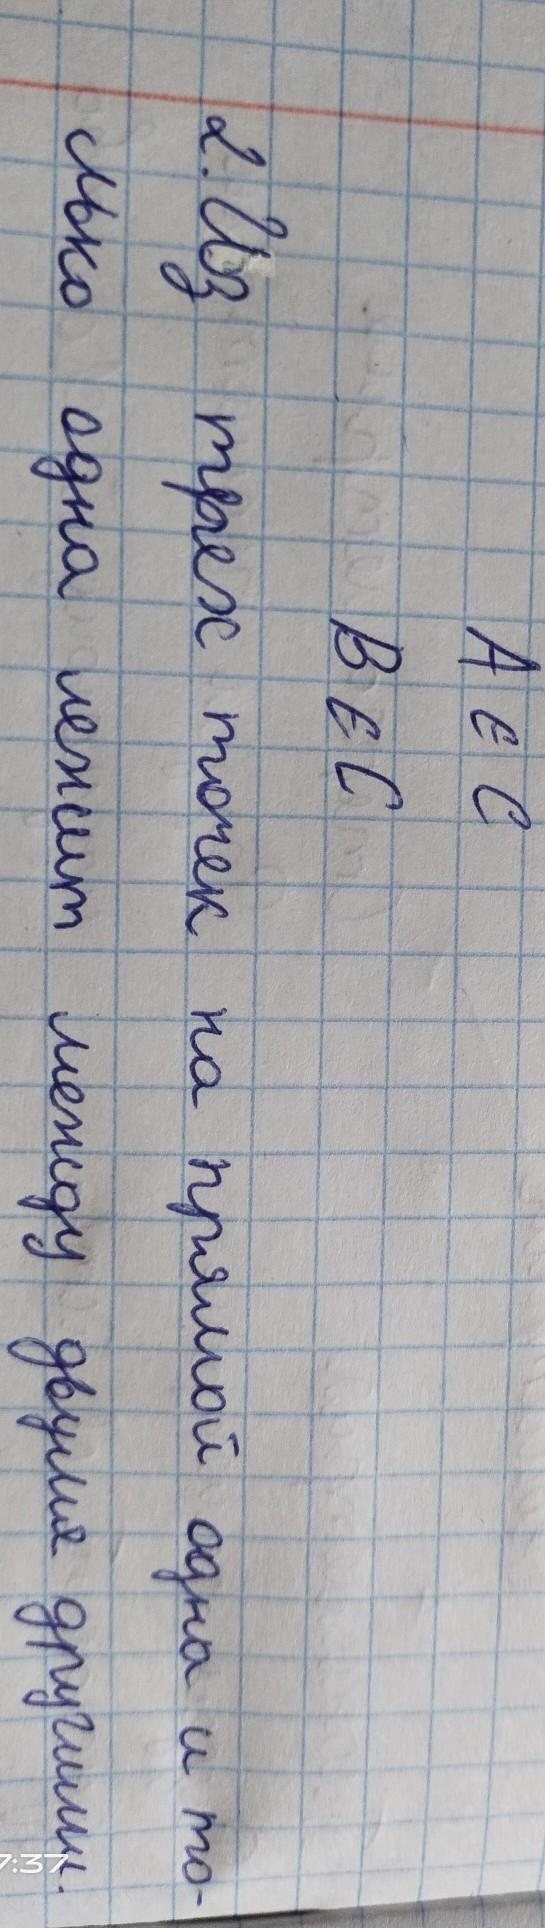 A ∈ C
B ∈ C
2. Из трех точек на прямой одна и то-
лько одна лежит между двумя другими.
7:37